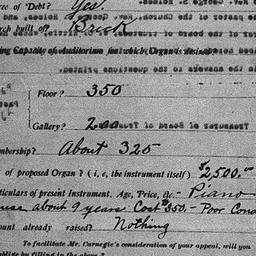 ee of Debt? Yes.
rch built of? Brick
ing Capacity of Auditorium for which Organ is desired?
Floor? 350
Gallery? 200
mbership? About 325
of proposed Organ? (i, e, the instrument itself) $2500.00
ticulars of present Instrument, Age, Price, &c.- Piano
use about 9 years Cost $350, - Poor Cond
ount already raised? Nothing
To facilitate Mr. Carnegie's consideration of your appeal, will you
oblige by filling in the above?